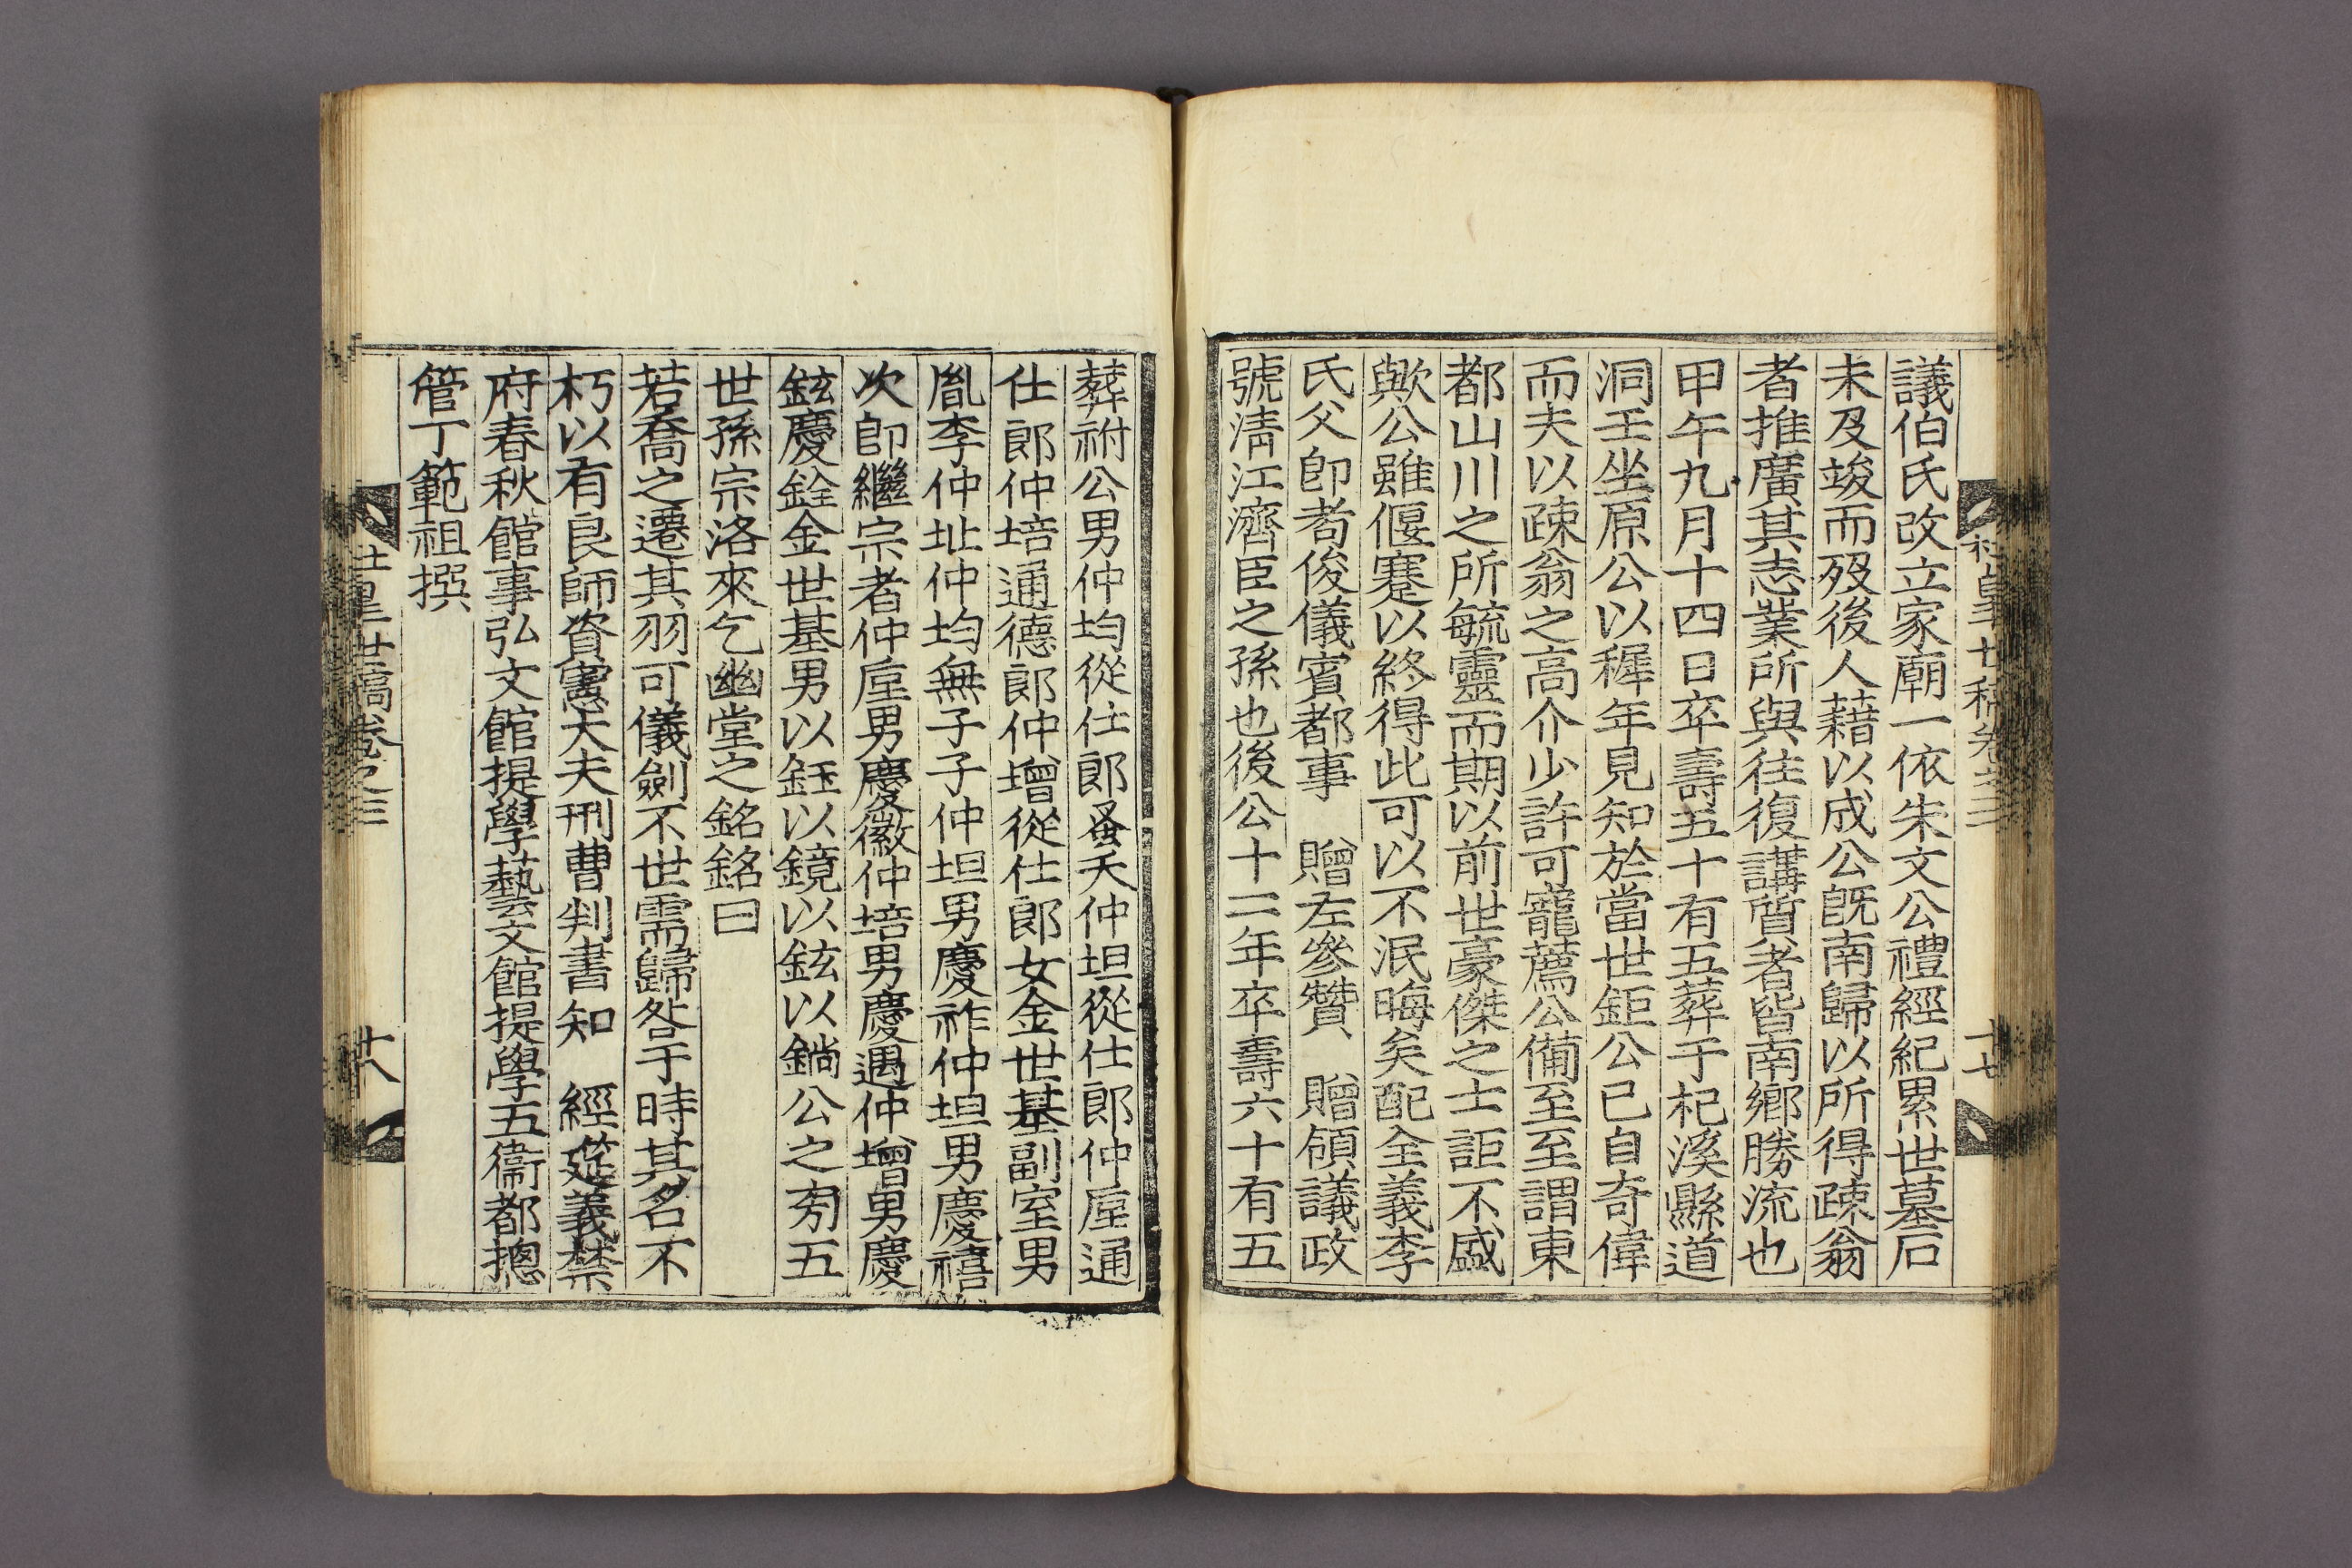 議伯氏改立家廟一依朱文公禮經紀累世墓石
未及竣而歿後人藉以成公旣南歸以所得疎翁
者推廣其志業所與往復講質者皆南鄉勝流也
甲午九月十四日卒壽五十有五葬于杞溪縣道
洞壬坐原公以穉年見知於當世鉅公已自奇偉
而夫以疎翁之高介少許可寵薦公備至至謂東
都山川之所毓靈而期以前世豪傑之士詎不盛
歟公雖偃蹇以終得此可以不泯晦矣配全義李
氏父卽耉俊儀賓都事 贈左參贊 贈領議政
號淸江濟臣之孫也後公十二年卒壽六十有五
葬祔公男仲均從仕郎蚤夭仲坦從仕郎仲垕通
仕郎仲培通德郎仲增從仕郎女金世基副室男
胤李仲址仲均無子子仲坦男慶祚仲坦男慶禧
次卽繼宗者仲垕男慶徽仲培男慶遇仲增男慶
鉉慶銓金世基男以鈺以鏡以鉉以鏛公之旁五
世孫宗洛來乞幽堂之銘銘曰
若喬之遷其羽可儀劍不世需歸咎于時其名不
朽以有良師資憲大夫刑曹判書知 經筵義禁
府春秋館事弘文館提學藝文館提學五衞都摠
管丁範祖撰
世稿卷之三
十八